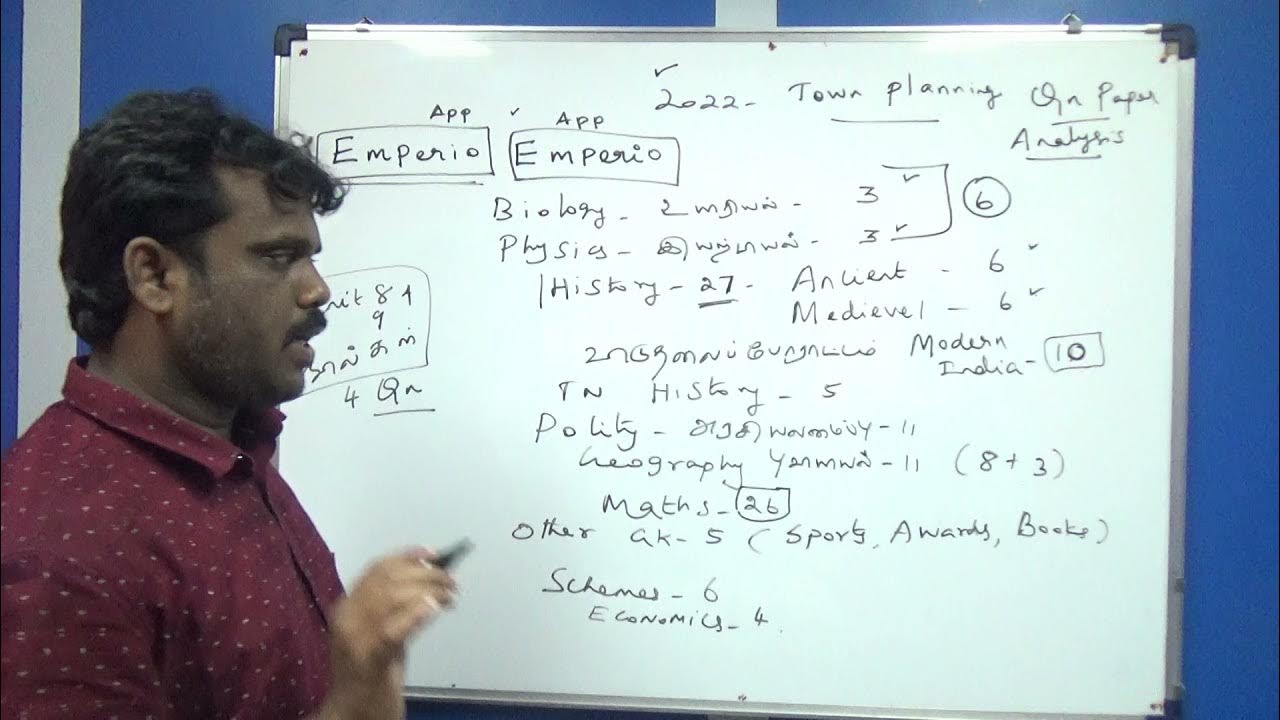 2022- Town planning Qn Paper
Analysis
App App
Emperio Emperio
Biology - உயிரியல் - 3
Physics - இயற்பியல் - 3
6
History - 27 - Ancient - 6
Medievel - 6
Modern
India - 10
TN History - 5
Polity - அரசியலமைப்பு - 11
Geography புவியியல் - 11 (8 + 3)
Maths - 26
Other GK - 5 (Sports, Awards, Books)
Schemes - 6
Economics - 4.
8
9
4 Qn